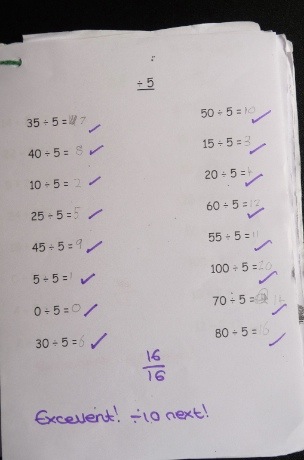 ÷ 5
35 ÷ 5 = 7
40 ÷ 5 = 8
10 ÷ 5 = 2
25 ÷ 5 = 5
45 ÷ 5 = 9
5 ÷ 5 = 1
0 ÷ 5 = 0
30 ÷ 5 = 6
50 ÷ 5 = 10
15 ÷ 5 = 3
20 ÷ 5 = 4
60 ÷ 5 = 12
55 ÷ 5 = 11
100 ÷ 5 = 20
70 ÷ 5 = 14
80 ÷ 5 = 16
16
16
Excellent! ÷10 next!